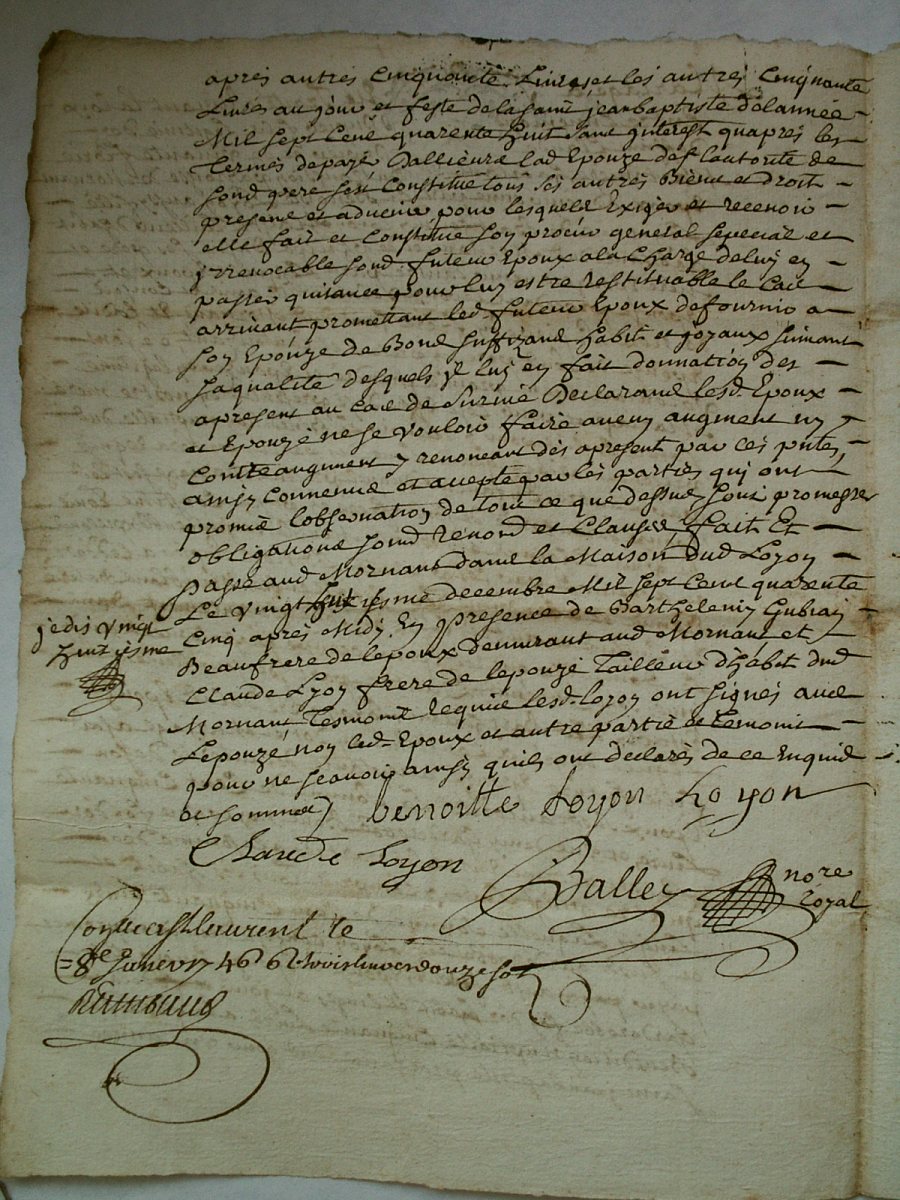 apres autres Cinquante Livres et les autres Cinquante
Livres au jour et feste de la saint jean baptiste de lannée
Mil sept Cent quarente huit sans jnterest quapres les
Termes depaye Dallieurs lad Epouze de lautorité de
sond pere sest Constitué tous ses autres Biens et droit
present et advenir pour lesquels Exiger et recevoir
elle fait et Constitue son procur general special et
jrrevocable sond. futeur Epoux a la Charge deluy en
passer quitance pour luy estre restituable le Cas
arrivant promettant led. futeur Epoux de fournir a
son Epouze de Bons suffizand habit et joyaux suivant
sa qualité desquels jl luy en fait donnation des
apresent au Cas de survie Declarand lesd. Epoux
et Epouze ne se vouloir faire aucun augment ny
Contre augment y renoncant dés apresent par ces pntes,
ainsy Convenue et accepté par les parties qui ont
promis lobservation de tout ce que dessus sous promesses
obligations soumd renond et Clauses, fait Et
passé aud Mornant dans la Maison dud Loyon
Le vingt huit isme decembre Mil sept Cent quarente
Cinq apres Midy En presence de Barthelemy
Beaufrere de lepoux demeurant aud Mornant et
Claude Lyon frere de lepouze Tailleur dhabit dud
Mornant Tesmoins Requis lesd. loyon ont signés avec
Lepouzé non led. Epoux et autre partie et temoint
pour ne scavoir ainsy quils ont declarés de ce Enquid
et sommés)
je dis vingt
huit isme
benoitte Loyon Loyon
Claude Loyon
Ballet nore
Royal
Con a St laurent le
8e janvr 1746